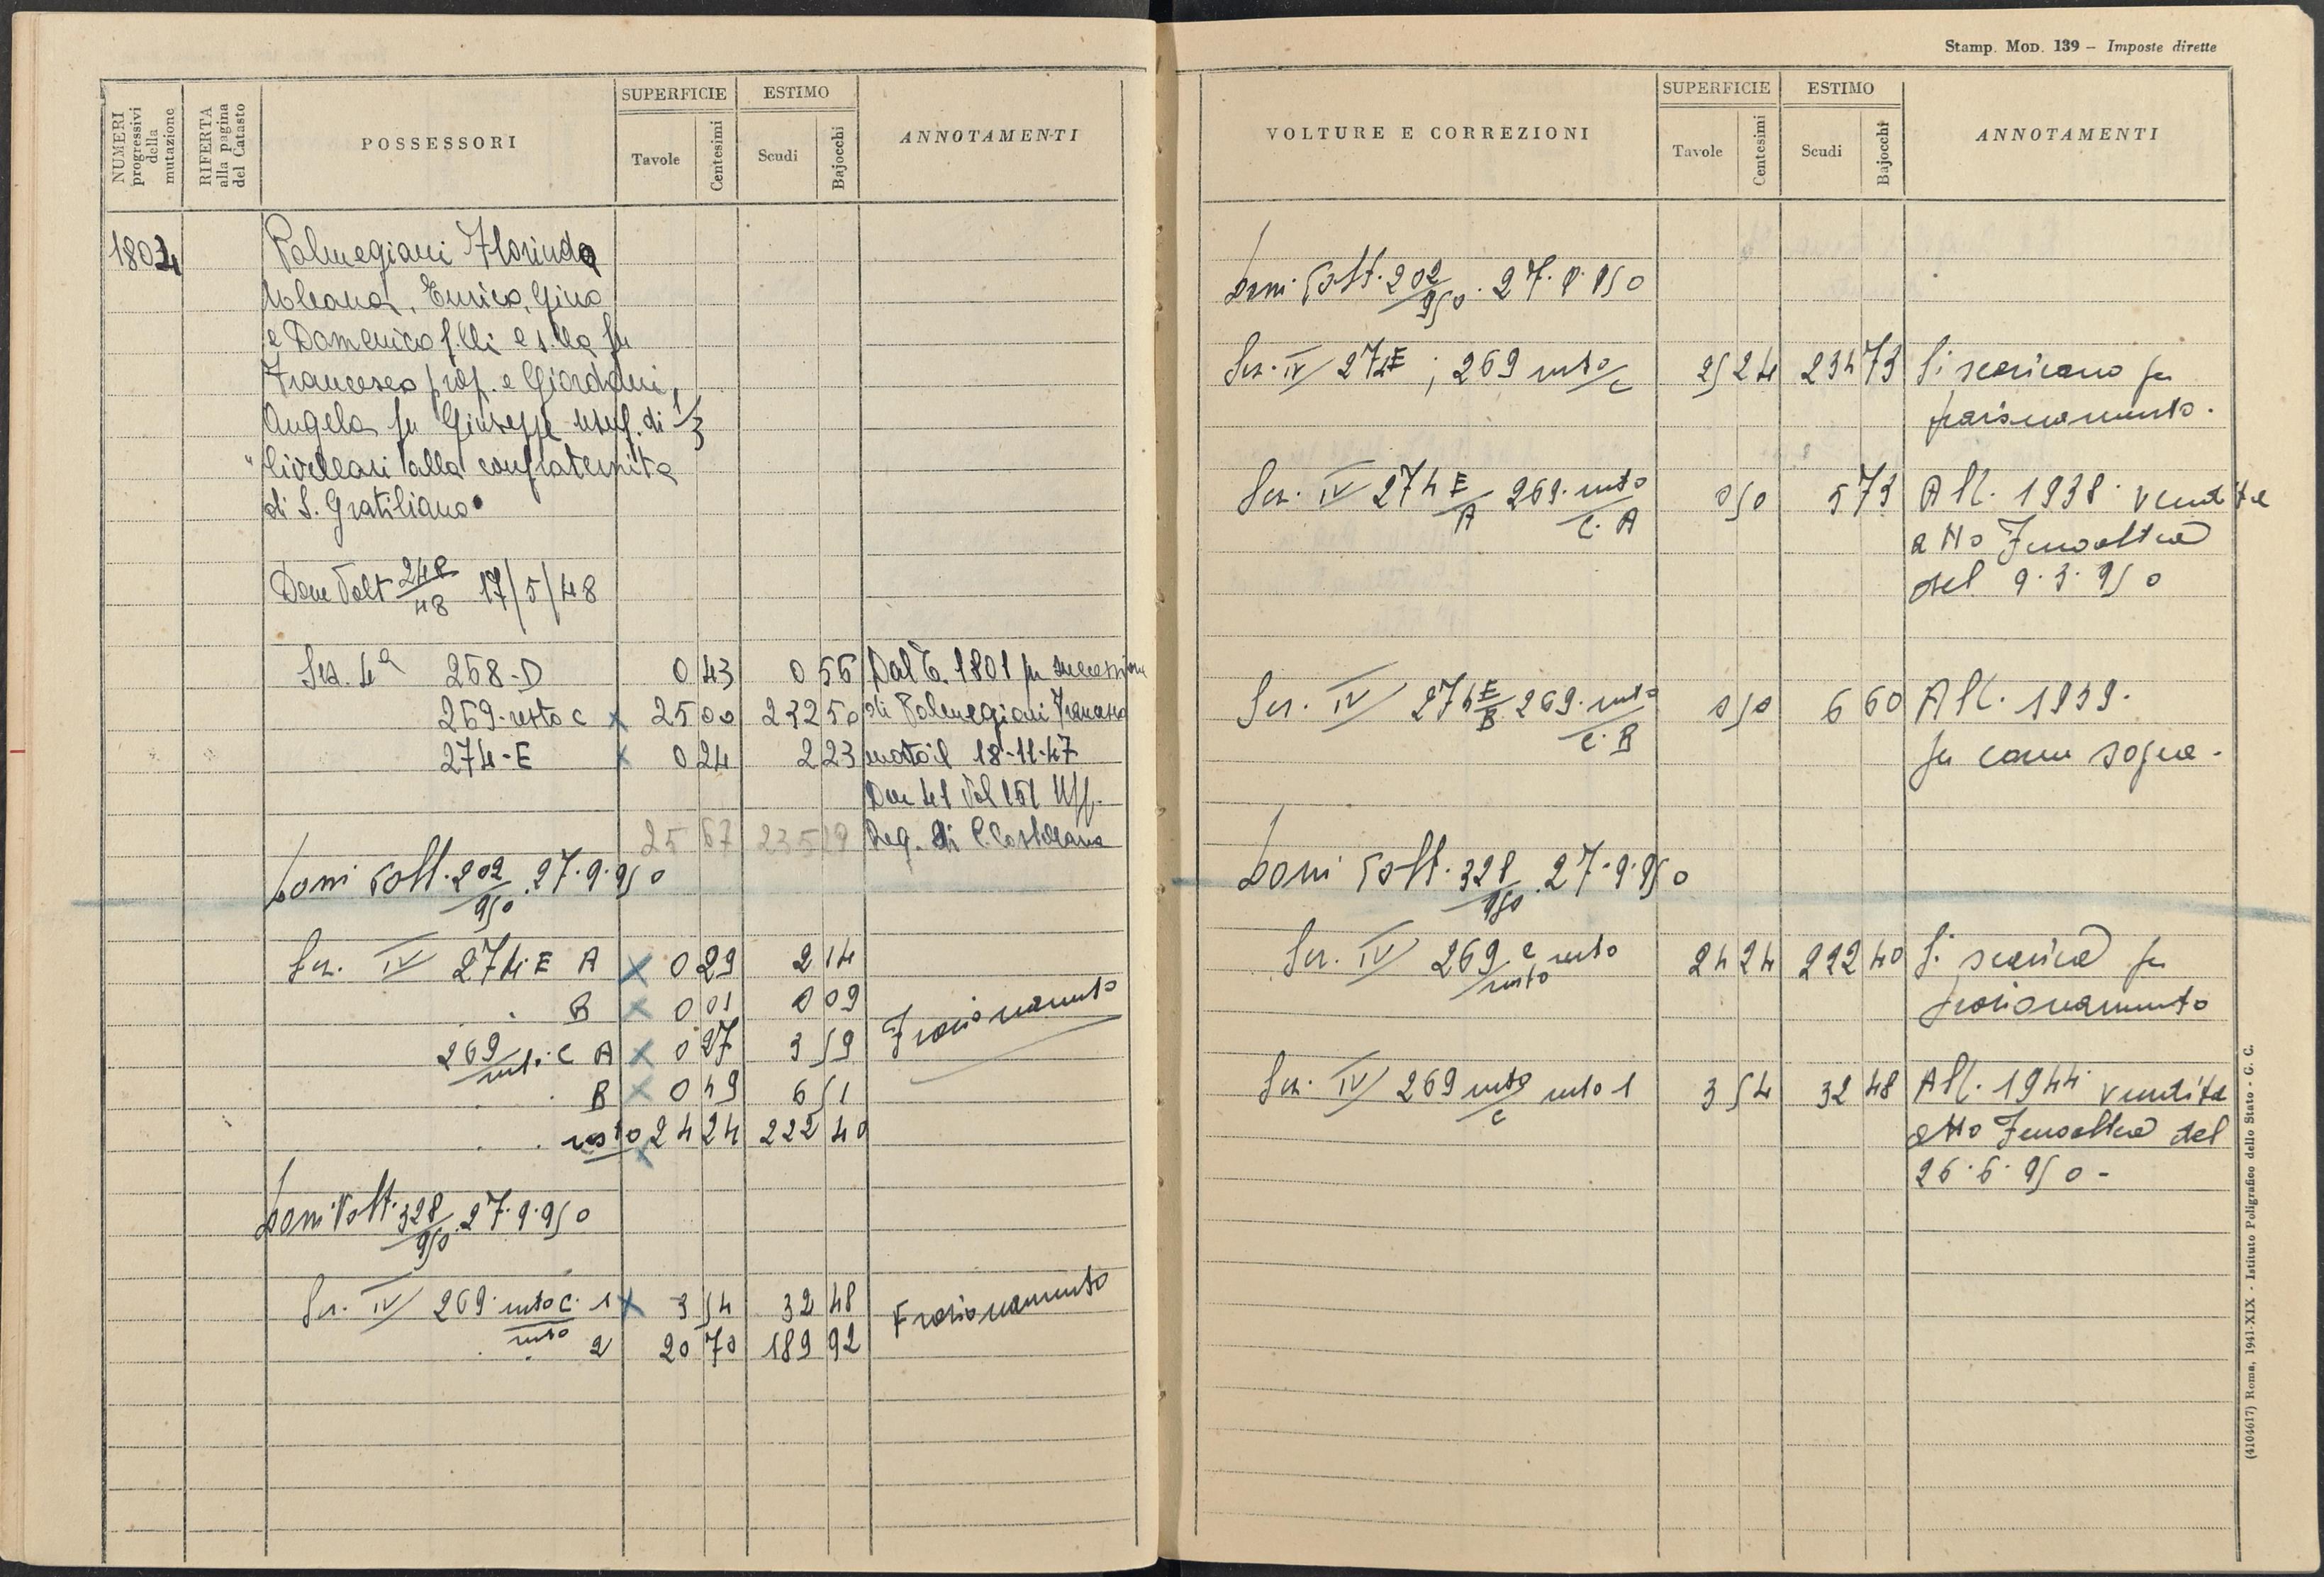 NUMERI progressivi della mutazione
RIFERTA alla pagina del Catasto
POSSESSORI
SUPERFICIE
Tavole
Centesimi
ESTIMO
Scudi
Bajocchi
ANNOTAMENTI
1804
Palmegiani Florindo
Enrico, Gino
e Domenico f.lli e s.lla fu
Francesco prop. e Giordani
Angela fu Giuseppe usuf. di 1/3
livellari alla confraternita
di S. Gratiliano
Dom Volt 248/48 17/5/48
Sez. 4ª 268-D 0 43 0 56 Dal C. 1801 per successione
269-resto c x 25 00 232 50 di Palmegiani Francesco
274-E x 0 24 2 23 morto il 18-11-47
Den 41 Vol 151 Uff.
25 67 235 29 Reg. di C. Castellana
Dom Volt. 202/950 27.9.950
Sez. IV 274 E A x 0 29 2 14
. B x 0 01 0 09
269/rest. C A x 0 27 3 59 Frazionamento
. B x 0 49 6 51
. . resto x 24 24 222 40
Dom Volt. 328/950 27.9.950
Sez. IV 269 resto C. 1 x 3 54 32 48 Frazionamento
resto
. . 2 20 70 189 92
Stamp. Mod. 139 – Imposte dirette
VOLTURE E CORREZIONI
SUPERFICIE
Tavole
Centesimi
ESTIMO
Scudi
Bajocchi
ANNOTAMENTI
Dom Volt. 202/950. 27. 9 950
Sez. IV 274E ; 269 resto/c 25 24 234 73 Si scaricano per
frazionamento.
Sez. IV 274 E/A 269. resto/C. A 0 50 5 73 All. 1938 vendita
atto Fenoaltea
del 9.3.950
Sez. IV 274 E/B 269. resto/C. B 0 50 6 60 All. 1939.
per come sopra.
Dom Volt. 328/950. 27.9.950
Sez. IV 269 c resto/resto 24 24 222 40 Si scarica per
frazionamento
Sez. IV 269 resto/c resto 1 3 54 32 48 All. 1944 vendita
atto Fenoaltea del
26.6.950 -
(4104617) Roma, 1941-XIX - Istituto Poligrafico dello Stato - G. C.